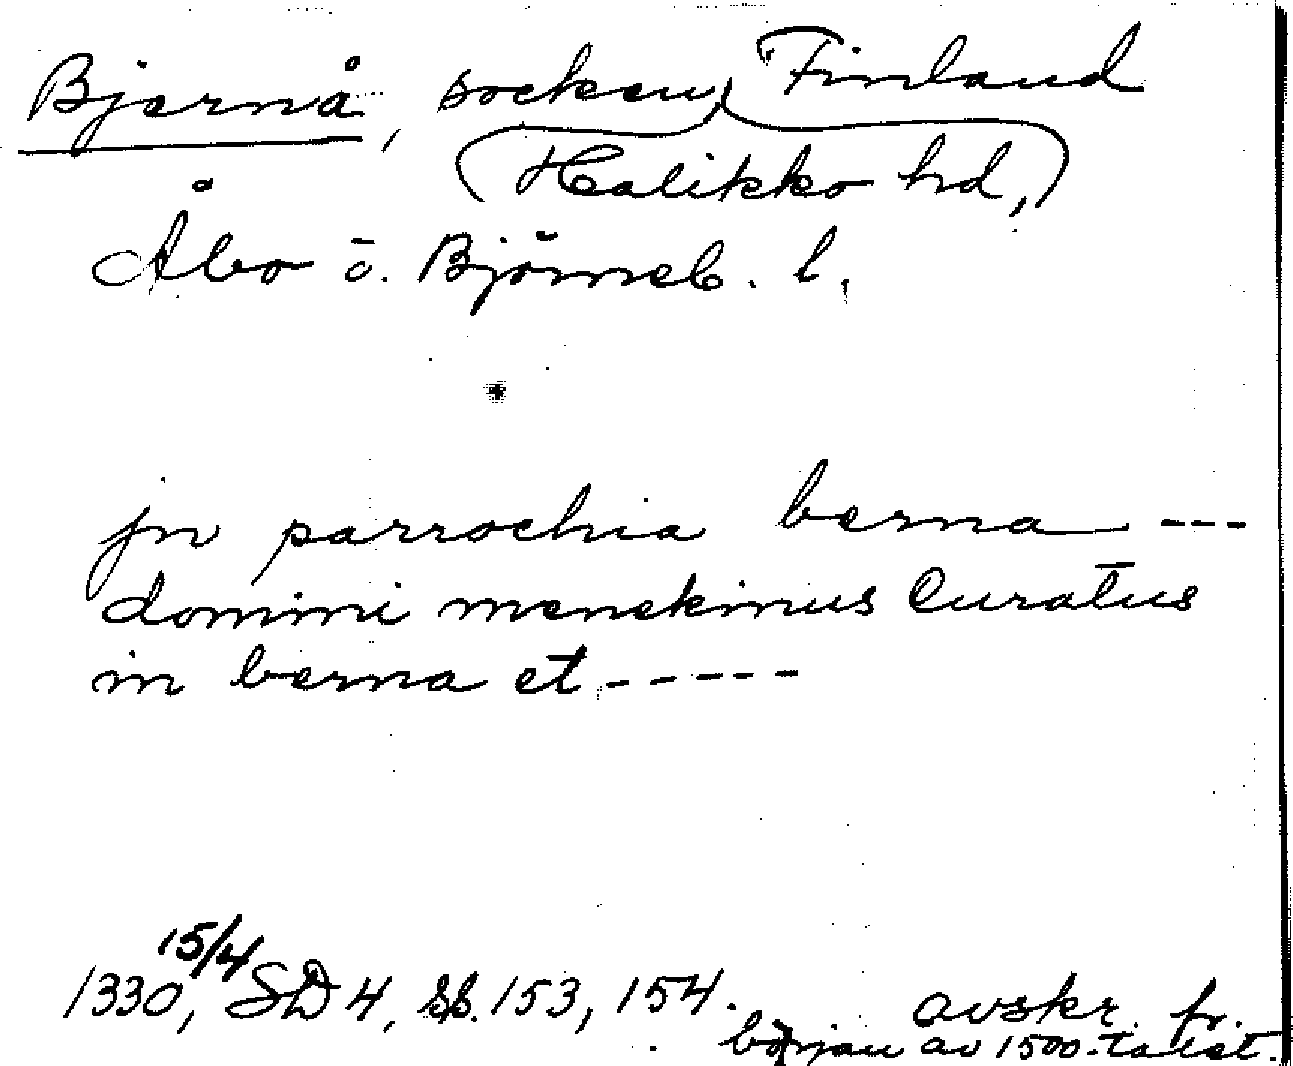 Bjärnå, socken, Finland
(Halikko hd,)
Åbo o. Björneb. l.
jn parrochia berna ---
domini menekinus Curatus
in berna et -----
1330, 15/4 SD 4, ss. 153, 154.
avskr. fr.
början av 1500-talet.